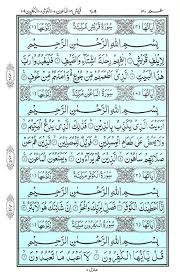 سُوْرَةُ قُرَيْشٍ مَكِّيَّةٌ
بِسْمِ اللهِ الرَّحْمٰنِ الرَّحِيْمِ
لِاِيْلٰفِ قُرَيْشٍ اٖلٰفِهِمْ رِحْلَةَ الشِّتَآءِ وَالصَّيْفِ فَلْيَعْبُدُوْا رَبَّ
هٰذَا الْبَيْتِ الَّذِيْٓ اَطْعَمَهُمْ مِّنْ جُوْعٍ وَّاٰمَنَهُمْ مِّنْ خَوْفٍ
سُوْرَةُ الْمَاعُوْنِ مَكِّيَّةٌ
بِسْمِ اللهِ الرَّحْمٰنِ الرَّحِيْمِ
اَرَءَيْتَ الَّذِيْ يُكَذِّبُ بِالدِّيْنِ فَذٰلِكَ الَّذِيْ يَدُعُّ الْيَتِيْمَ وَلَا
يَحُضُّ عَلٰى طَعَامِ الْمِسْكِيْنِ فَوَيْلٌ لِّلْمُصَلِّيْنَ الَّذِيْنَ هُمْ عَنْ
صَلَاتِهِمْ سَاهُوْنَ الَّذِيْنَ هُمْ يُرَآءُوْنَ وَيَمْنَعُوْنَ الْمَاعُوْنَ
سُوْرَةُ الْكَوْثَرِ مَكِّيَّةٌ
بِسْمِ اللهِ الرَّحْمٰنِ الرَّحِيْمِ
اِنَّآ اَعْطَيْنٰكَ الْكَوْثَرَ فَصَلِّ لِرَبِّكَ وَانْحَرْ اِنَّ شَانِئَكَ هُوَ الْاَبْتَرُ
سُوْرَةُ الْكٰفِرُوْنَ مَكِّيَّةٌ
بِسْمِ اللهِ الرَّحْمٰنِ الرَّحِيْمِ
قُلْ يٰٓاَيُّهَا الْكٰفِرُوْنَ لَآ اَعْبُدُ مَا تَعْبُدُوْنَ